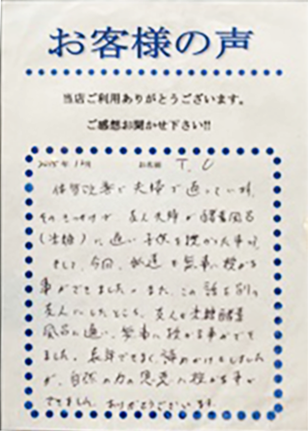 お客様の声
当店ご利用ありがとうございます。
ご感想お聞かせ下さい!!
2015年 お名前 T. U
体質改善で夫婦で通っている時、
そのきっかけが、友人夫婦が酵素風呂
に通い子供を授かった事
そして、今回、私達も無事に授かる
事ができました。また、この話を別の
友人にしたところ、友人も酵素
風呂に通い、無事に授かる事ができ
ました。長年できなく諦めかけもしました
が、自然の力の恩恵に授かる事が
できました。ありがとうございます。